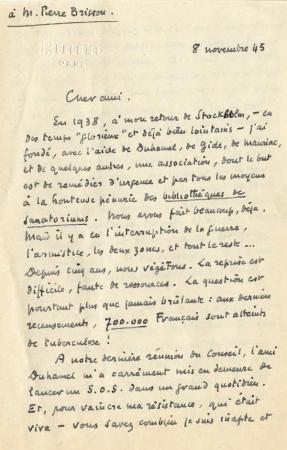 à M. Pierre Brisson.
BELLÊME
ORNE
8 novembre 45
Cher ami.
En 1938, à mon retour de Stockholm, – en
des temps "glorieux" et déjà bien lointains – j'ai
fondé, avec l'aide de Duhamel, de Gide, de Mauriac,
et de quelques autres, une association, dont le but
est de remédier d'urgence et par tous les moyens
à la honteuse pénurie des bibliothèques de
sanatoriums. Nous avons fait beaucoup, déjà.
Mais il y a eu l'interruption de la guerre,
l'armistice, les deux zones, et tout le reste...
Depuis cinq ans, nous végétons. La reprise est
difficile, faute de ressources. La question est
pourtant plus que jamais brûlante : aux derniers
recensements, 700.000 Français sont atteints
de tuberculose !
A notre dernière réunion du Conseil, l'ami
Duhamel m'a carrément mis en demeure de
lancer un S.O.S. dans un grand quotidien.
Et, pour vaincre ma résistance, qui était
vive – vous savez combien je suis inapte et